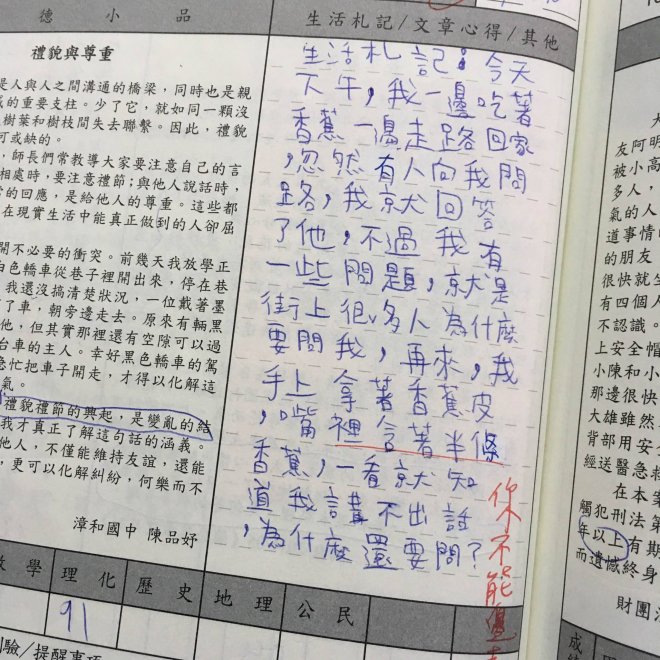 德小品
生活札記/文章心得/其他
禮貌與尊重
是人與人之間溝通的橋梁,同時也是親
的重要支柱。少了它,就如同一顆沒
樹葉和樹枝間失去聯繫。因此,禮貌
可或缺的。
,師長們常教導大家要注意自己的言
相處時,要注意禮節;與他人說話時,
的回應,是給他人的尊重。這些都
在現實生活中能真正做到的人卻屈
開不必要的衝突。前幾天我放學正
白色轎車從巷子裡開出來,停在巷
我還沒搞清楚狀況,一位戴著墨
了車,朝旁邊走去。原來有輛黑
他,但其實那裡還有空隙可以過
台車的主人。幸好黑色轎車的駕
急忙把車子開走,才得以化解這
氣。
禮貌禮節的興起,是變亂的結
我才真正了解這句話的涵義。
他人,不僅能維持友誼,還能
,更可以化解糾紛,何樂而不
漳和國中 陳品妤
生活札記:今天
下午,我一邊吃著
香蕉一邊走路回家
,忽然有人向我問
路,我就回答
了他,不過我有
一些問題,就是
街上很多人為什麼
要問我,再來,我
手上拿著香蕉皮
,嘴裡含著半條
香蕉,一看就知
道我講不出話
,為什麼還要問?
你不能邊
數學 理化 歷史 地理 公民
91
測驗/提醒事項
大
友阿明
被小高
多人,
氣的人
道事情
的朋友
很快就
有四個人
不認識。
上安全帽
小陳和小
那邊很快
大雄雖然
背部用安
經送醫急救
在本案
觸犯刑法第
年以上有期
而遺憾終身
財團法
成